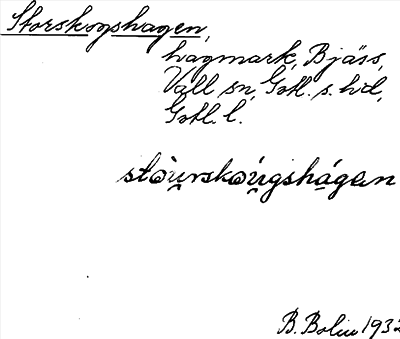 Storskogshagen,
hagmark, Bjäss,
Vall sn, Gotl. s. hd,
Gotl. l.
stòu̯rskóu̯gshágan
B. Bolin 1932